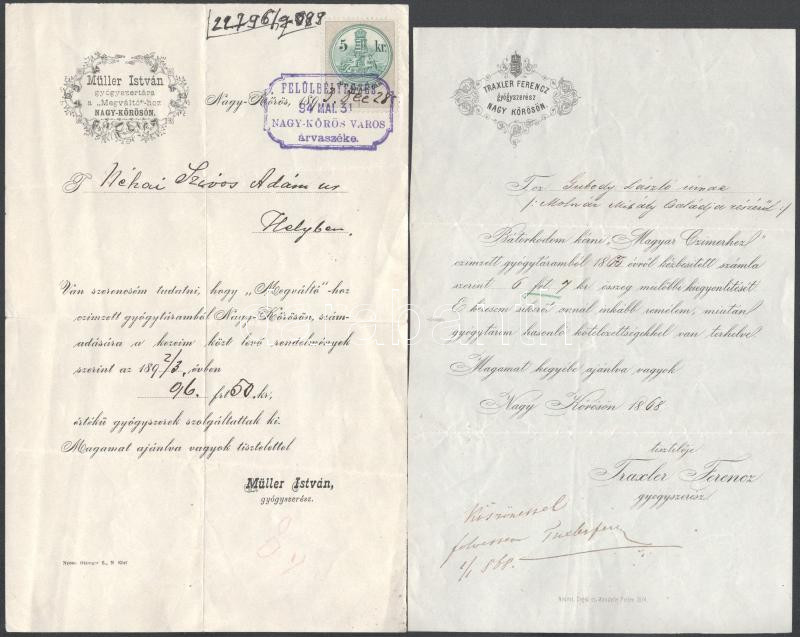 22796/9-893
Müller István
gyógyszertára
a „Megváltó"-hoz
NAGY-KŐRÖSÖN.
5 kr.
Nagy-Kőrös, 189
28
FELÜLBÉLYEGZÉS
94 MÁJ. 31
NAGY-KŐRÖS VÁROS
árvaszéke.
T Néhai Szívós Ádám úr
Helyben.
Ván szerencsém tudatni, hogy „Megváltó"-hoz
czimzett gyógytáramból Nagy-Kőrösön, szám-
adására a kezeim közt levő rendelmények
szerint az 189 2/3. évben
96. frt 50. kr,
értékű gyógyszerek szolgáltattak ki.
Magamat ajánlva vagyok tisztelettel
Müller István,
gyógyszerész.
Nyom. Ottinger E., N Kőrös
TRAXLER FERENCZ
gyógyszerész
NAGY KŐRÖSÖN.
László úrnak
/: Molnár Mihály Családja részéről :/
Bátorkodom kérni „Magyar Czimerhez"
czimzett gyógytáramból 186 évről kézbesitett számla
szerint 6 frt 7 kr összeg mulóbbi kiegyenlitését
E kérésem sikerét annál inkább remélem, miután
gyógytárim hasonló kötelezettségekkel van terhelve.
Magamat kegyébe ajánlva vagyok
Nagy Kőrösön 1868
tisztelője
Traxler Ferencz
gyógyszerész
Köszönettel
felvettem
868.